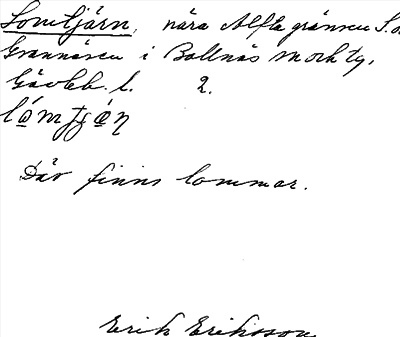 Lomtjärn, nära Alfta gränsen S.o.
Grannäsen i Bollnäs sn och tg,
Gävleb. l. 2.
Där finns lommar.
Erik Eriksson